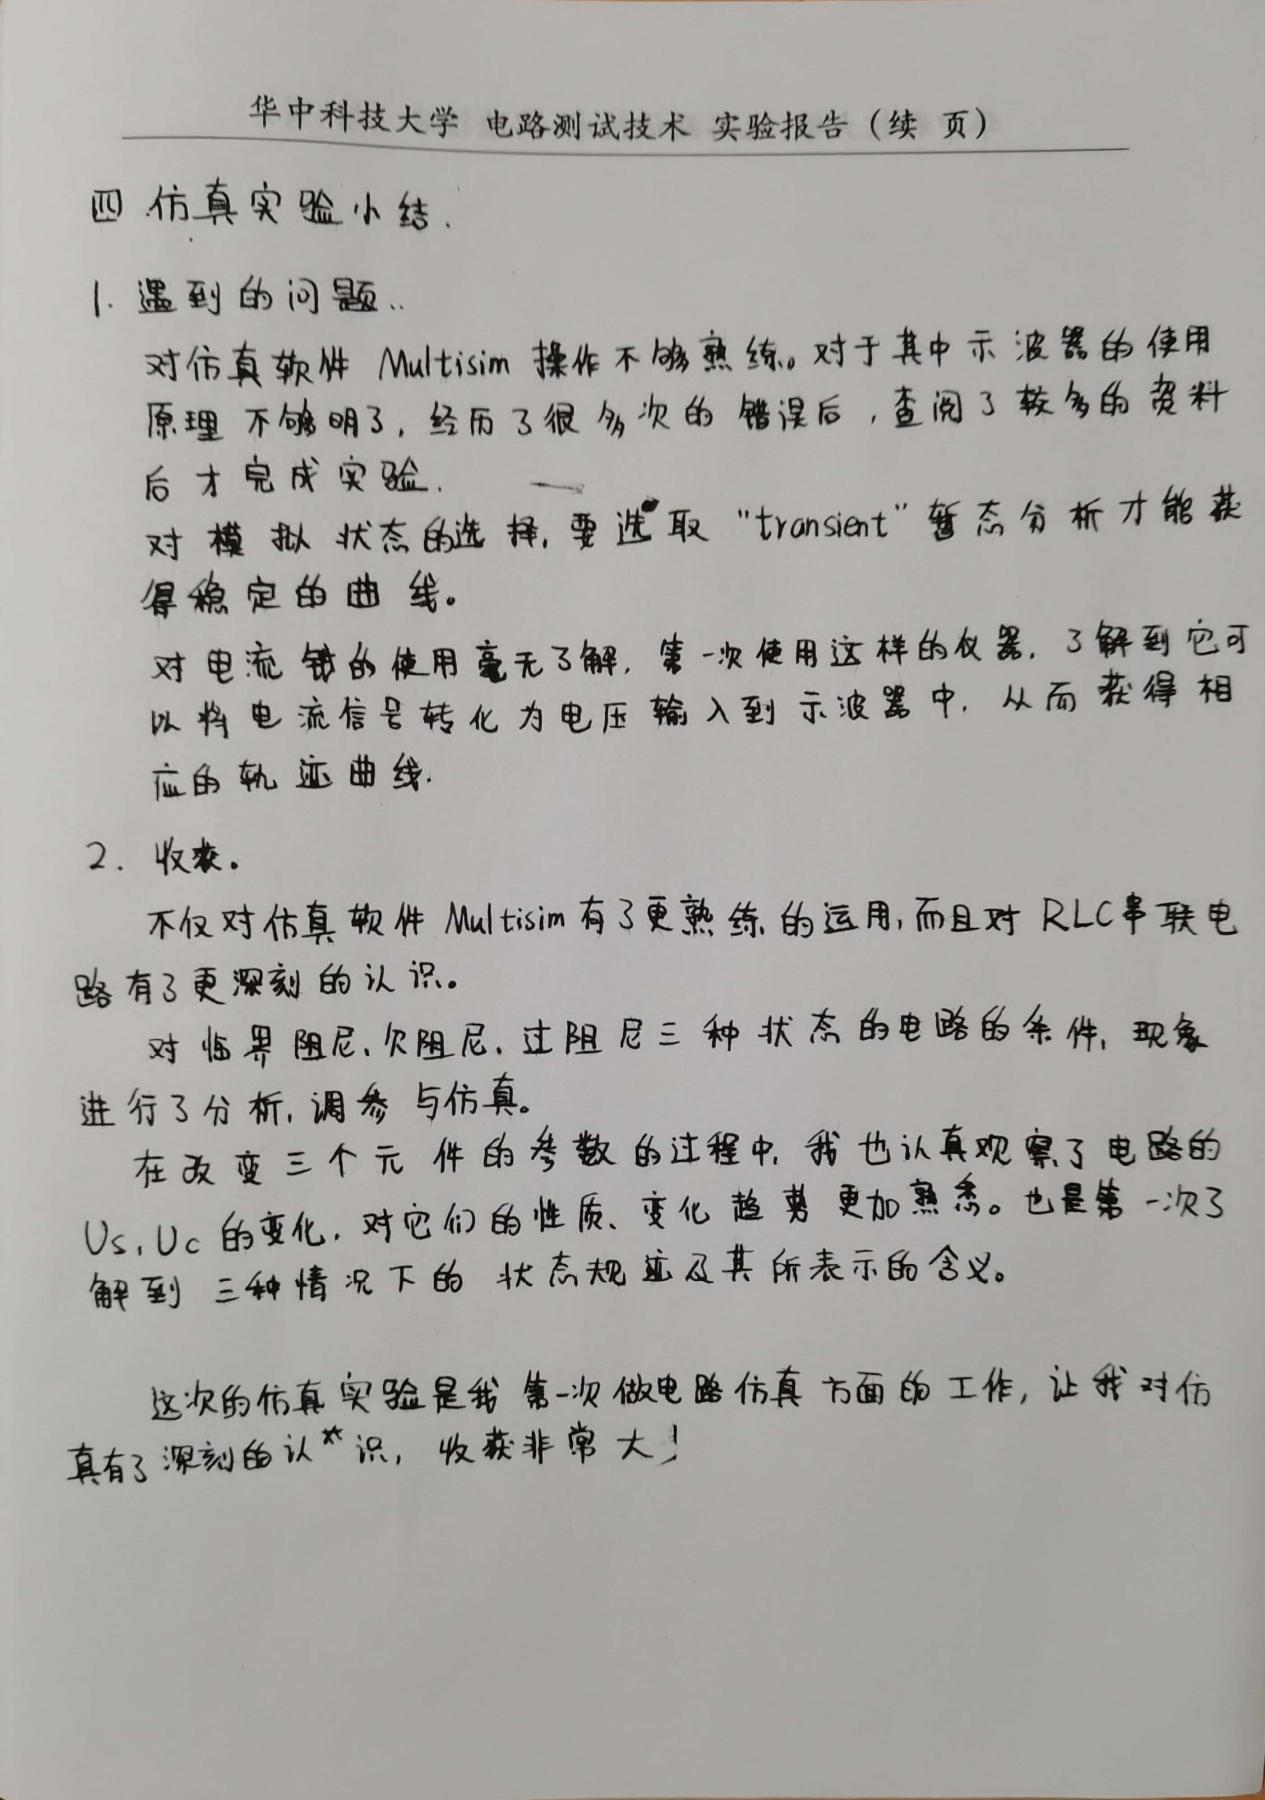 华中科技大学 电路测试技术 实验报告（续 页）
四.仿真实验小结.
1. 遇到的问题..
对仿真软件 Multisim 操作不够熟练。对于其中示波器的使用
原理不够明了，经历了很多次的错误后，查阅了较多的资料
后才完成实验.
对模拟状态的选择，要选取“transient”暂态分析才能获
得稳定的曲线。
对电流钳的使用毫无了解，第一次使用这样的仪器，了解到它可
以将电流信号转化为电压输入到示波器中，从而获得相
应的轨迹曲线.
2. 收获。
不仅对仿真软件 Multisim 有了更熟练的运用，而且对 RLC串联电
路有了更深刻的认识。
对临界阻尼、欠阻尼、过阻尼三种状态的电路的条件，现象
进行了分析，调参与仿真。
在改变三个元件的参数的过程中，我也认真观察了电路的
Us, Uc 的变化，对它们的性质、变化趋势更加熟悉。也是第一次了
解到三种情况下的状态规迹及其所表示的含义。
这次的仿真实验是我第一次做电路仿真方面的工作，让我对仿
真有了深刻的认识，收获非常大！